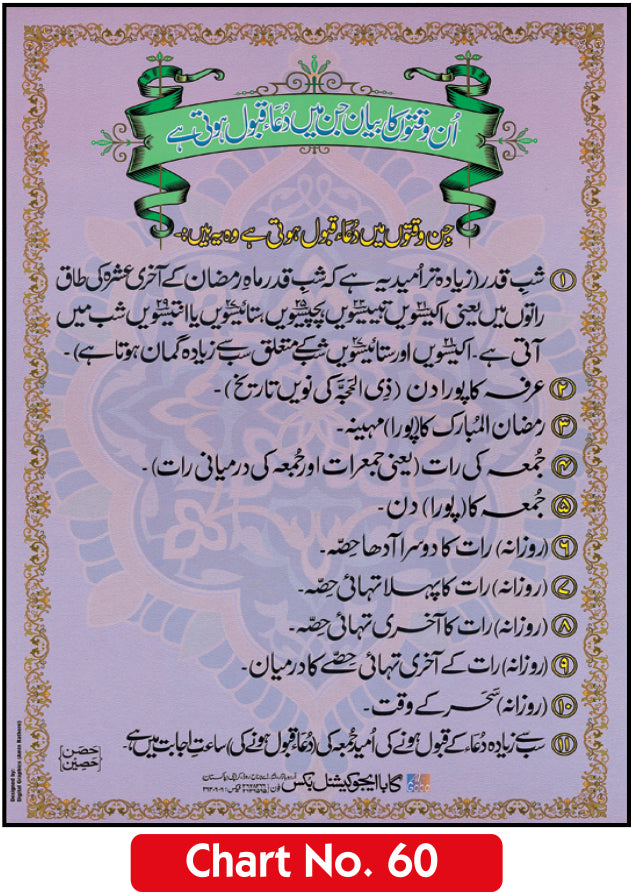 اُن وقتوں کا بیان جن میں دُعاء قبول ہوتی ہے
جن وقتوں میں دُعاء قبول ہوتی ہے وہ یہ ہیں:-
۱ شبِ قدر (زیادہ تر اُمید یہ ہے کہ شبِ قدر ماہِ رمضان کے آخری عشرہ کی طاق
راتوں میں یعنی اکیسویں ۲۱ تیئیسویں ۲۳ پچیسویں ۲۵، ستائیسویں ۲۷ یا انتیسویں ۲۹ شب میں
آتی ہے۔ اکیسویں ۲۱ اور ستائیسویں ۲۷ شب کے متعلق سب سے زیادہ گمان ہوتا ہے)۔
۲ عرفہ کا پورا دن (ذی الحجّہ کی نویں تاریخ)۔
۳ رمضان المُبارک کا (پورا) مہینہ۔
۴ جُمعہ کی رات (یعنی جمعرات اور جُمعہ کی درمیانی رات)۔
۵ جُمعہ کا (پورا) دن۔
۶ (روزانہ) رات کا دوسرا آدھا حِصّہ۔
۷ (روزانہ) رات کا پہلا تہائی حِصّہ۔
۸ (روزانہ) رات کا آخری تہائی حِصّہ۔
۹ (روزانہ) رات کے آخری تہائی حِصّے کا درمیان۔
۱۰ (روزانہ) سَحَر کے وقت۔
۱۱ سب سے زیادہ دُعاء کے قبول ہونے کی اُمید جُمعہ کی (دُعاء قبول ہونے کی) ساعتِ اجابت میں ہے۔
حصن
حصین
گابا ایجوکیشنل بکس
Gaba
Designed by:
Digital Graphics (Amin Rathore)
Chart No. 60